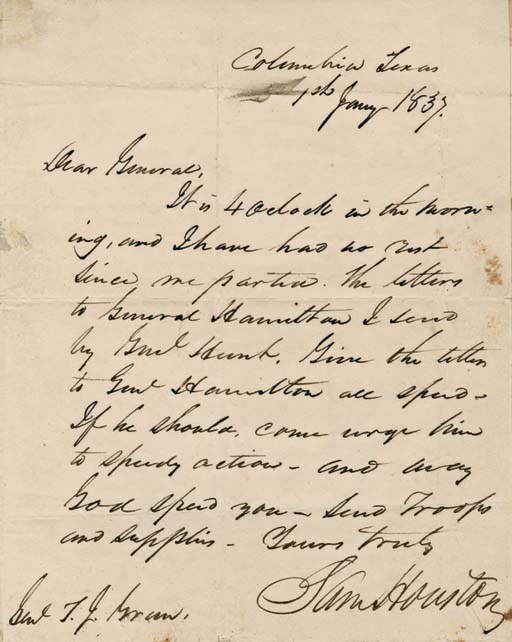 Columbia Texas
1st Jany 1837.
Dear General,
It is 4 Oclock in the morn=
ing, and I have had no rest
since we parted. The letters
to General Hamilton I send
by Genl Hunt. Give the letters
to Genl Hamilton all speed -
If he should, come urge him
to speedy action - and may
God speed you - Send Troops
and supplies - Yours truly
Sam Houston
Genl T. J. Green.